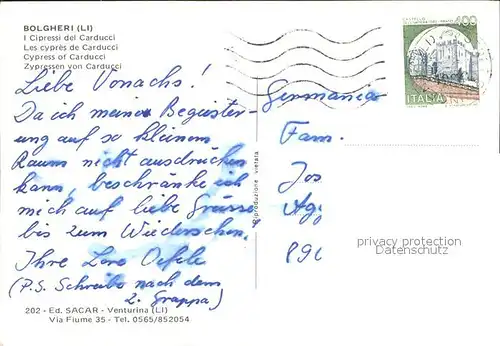 BOLGHERI (LI)
I Cipressi del Carducci
Les cyprès de Carducci
Cypress of Carducci
Zypressen von Carducci
Liebe Vonachs!
Da ich meine Begeister-
ung auf so kleinem
Raum nicht ausdrücken
kann, beschränke ich
mich auf liebe Grüsse
bis zum Wiedersehen.
Ihre Lore Oefele
(P.S. Schreibe nach dem
2. Grappa)
202 - Ed. SACAR - Venturina (LI)
Via Fiume 35 - Tel. 0565/852054
riproduzione vietata
400
ITALIA
Germania
Fam.
Jos
Ag
privacy protection
Datenschutz